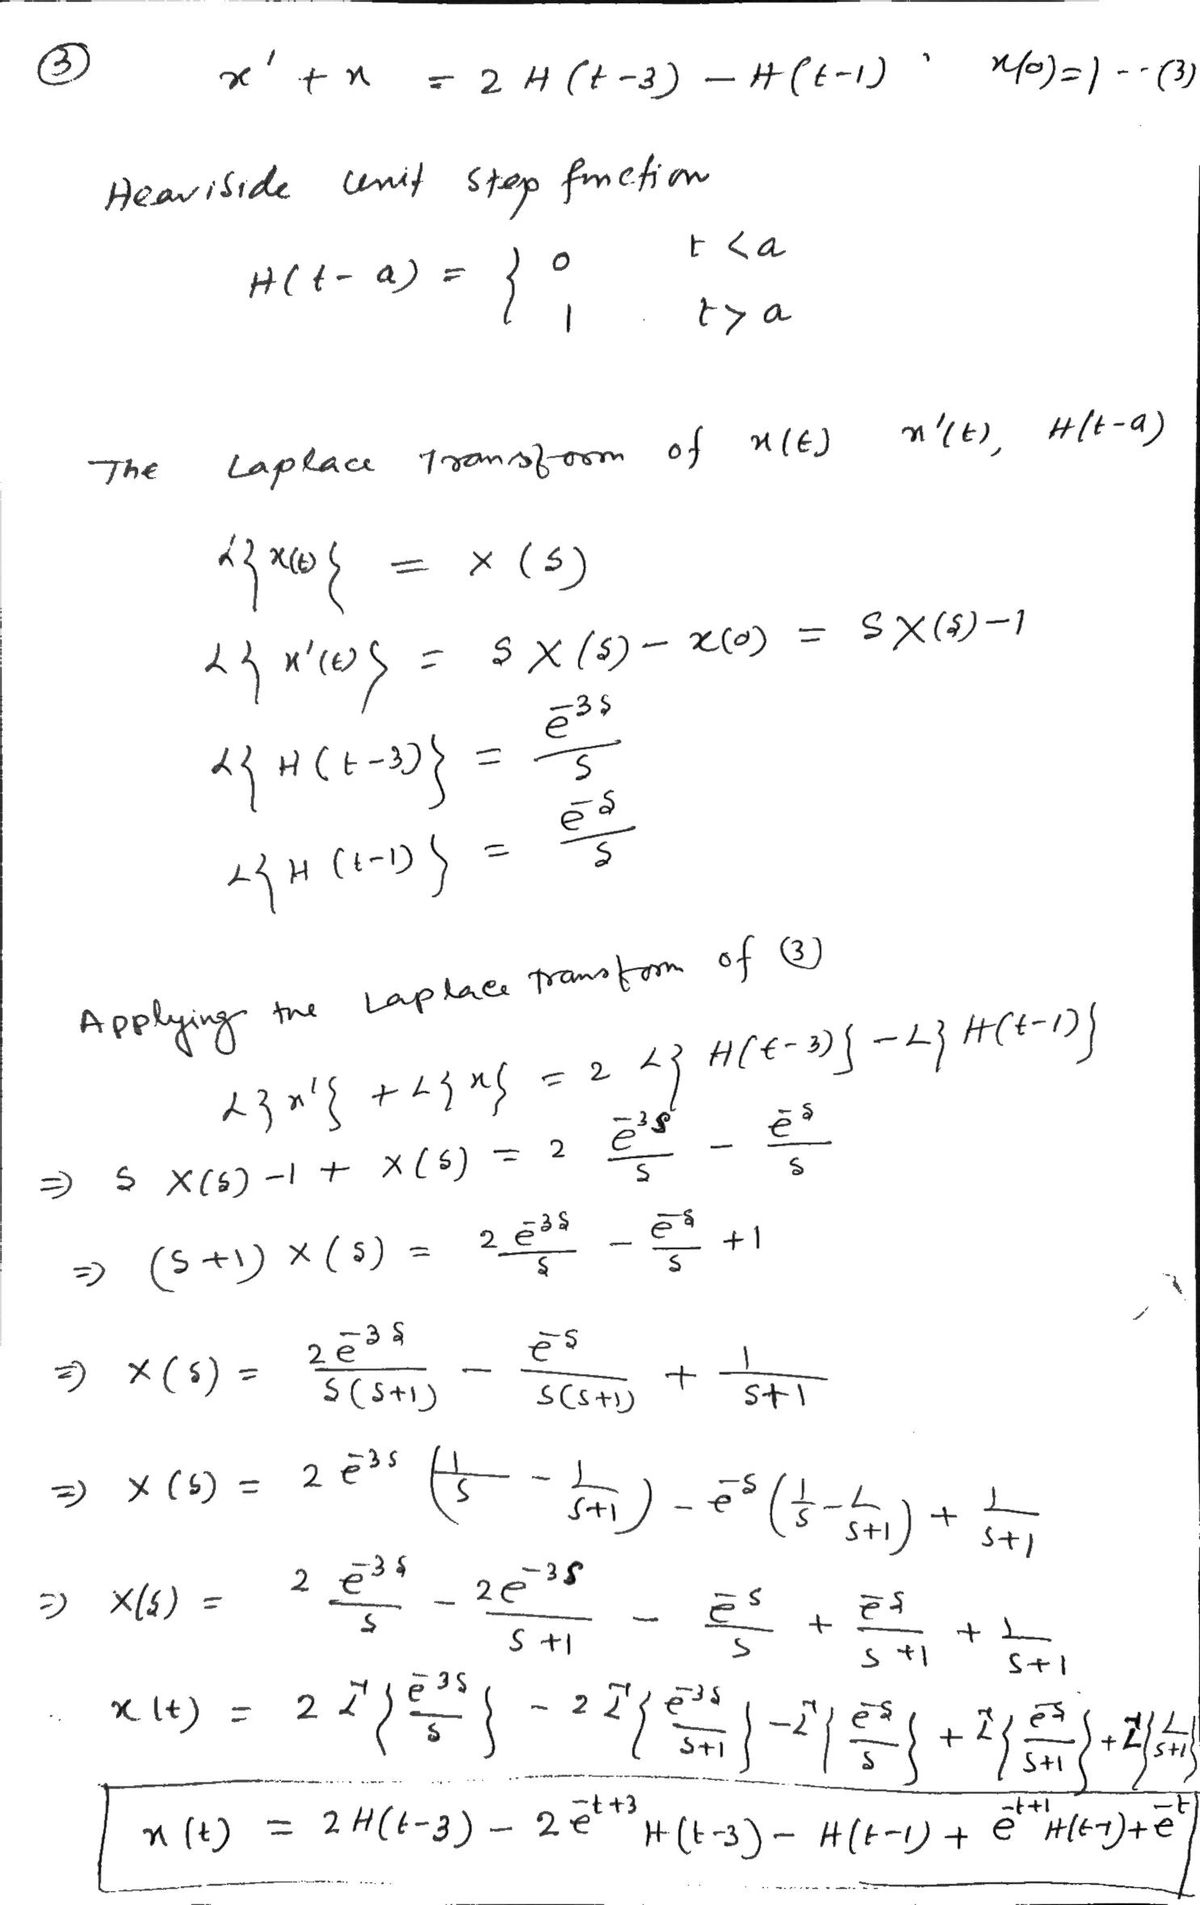 ③ x' + x = 2 H (t-3) - H(t-1) , x(0)=1 --(3)
Heaviside unit step function
H(t-a) = { 0 t < a
1 t > a
The Laplace Transform of x(t) x'(t), H(t-a)
L{x(t)} = X(s)
L{x'(t)} = sX(s) - x(0) = sX(s)-1
L{H(t-3)} = e^{-3s}/s
L{H(t-1)} = e^{-s}/s
Applying the Laplace transform of ③
L{x'} + L{x} = 2 L{H(t-3)} - L{H(t-1)}
⇒ s X(s) -1 + X(s) = 2 e^{-3s}/s - e^{-s}/s
⇒ (s+1) X(s) = 2e^{-3s}/s - e^{-s}/s +1
⇒ X(s) = 2e^{-3s}/s(s+1) - e^{-s}/s(s+1) + 1/s+1
⇒ X(s) = 2 e^{-3s} (1/s - 1/s+1) - e^{-s} (1/s - 1/s+1) + 1/s+1
⇒ X(s) = 2 e^{-3s}/s - 2e^{-3s}/s+1 - e^{-s}/s + e^{-s}/s+1 + 1/s+1
∴ x(t) = 2 L^{-1}{e^{-3s}/s} - 2 L^{-1}{e^{-3s}/s+1} - L^{-1}{e^{-s}/s} + L^{-1}{e^{-s}/s+1} + L^{-1}{1/s+1}
x(t) = 2H(t-3) - 2e^{-t+3} H(t-3) - H(t-1) + e^{-t+1} H(t-1) + e^{-t}